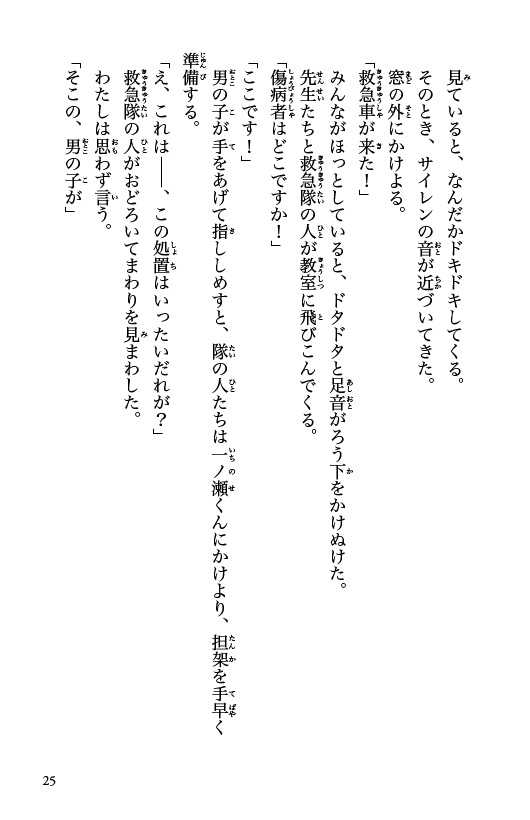 見ていると、なんだかドキドキしてくる。
そのとき、サイレンの音が近づいてきた。
窓の外にかけよる。
「救急車が来た！」
みんながほっとしていると、ドタドタと足音がろう下をかけぬけた。
先生たちと救急隊の人が教室に飛びこんでくる。
「傷病者はどこですか！」
「ここです！」
男の子が手をあげて指ししめすと、隊の人たちは一ノ瀬くんにかけより、担架を手早く
準備する。
「え、これは――、この処置はいったいだれが？」
救急隊の人がおどろいてまわりを見まわした。
わたしは思わず言う。
「そこの、男の子が」
25